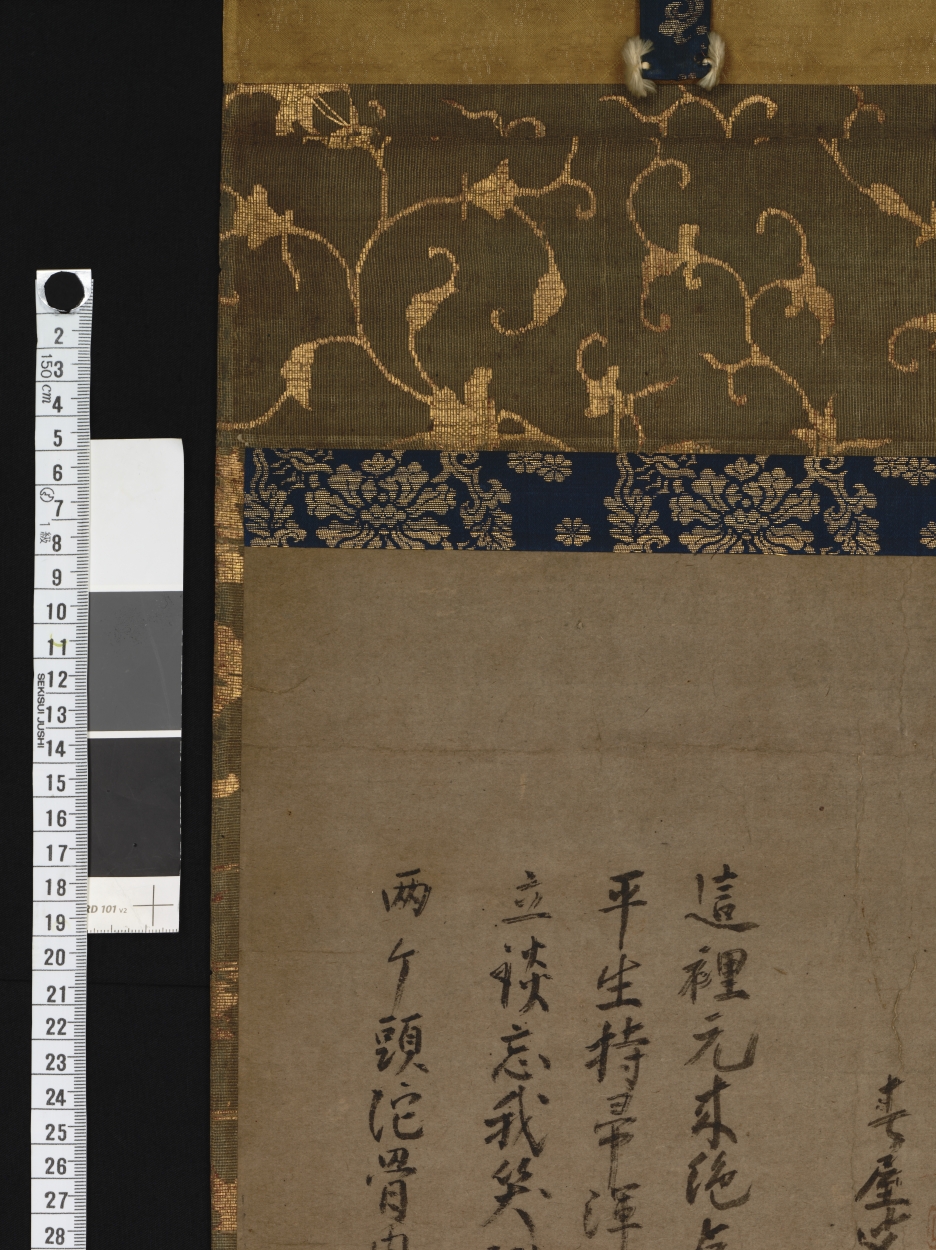 春屋
這裡元来絶
平生持帚渾
立談忘我笑
両个頭陀骨
2
3
4
5
6
7
8
9
10
11
12
13
14
15
16
17
18
19
20
21
22
23
24
25
26
27
28
150 cm
1級
SEKISUI JUSHI
RD 101 v2